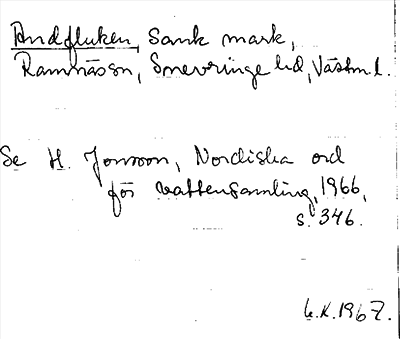 Andfluken, Sank mark,
Ramnässn, Snevringe hd, Västm l.
Se H. Jonsson, Nordiska ord
för vattensamling, 1966,
s. 346.
L.K. 1967.